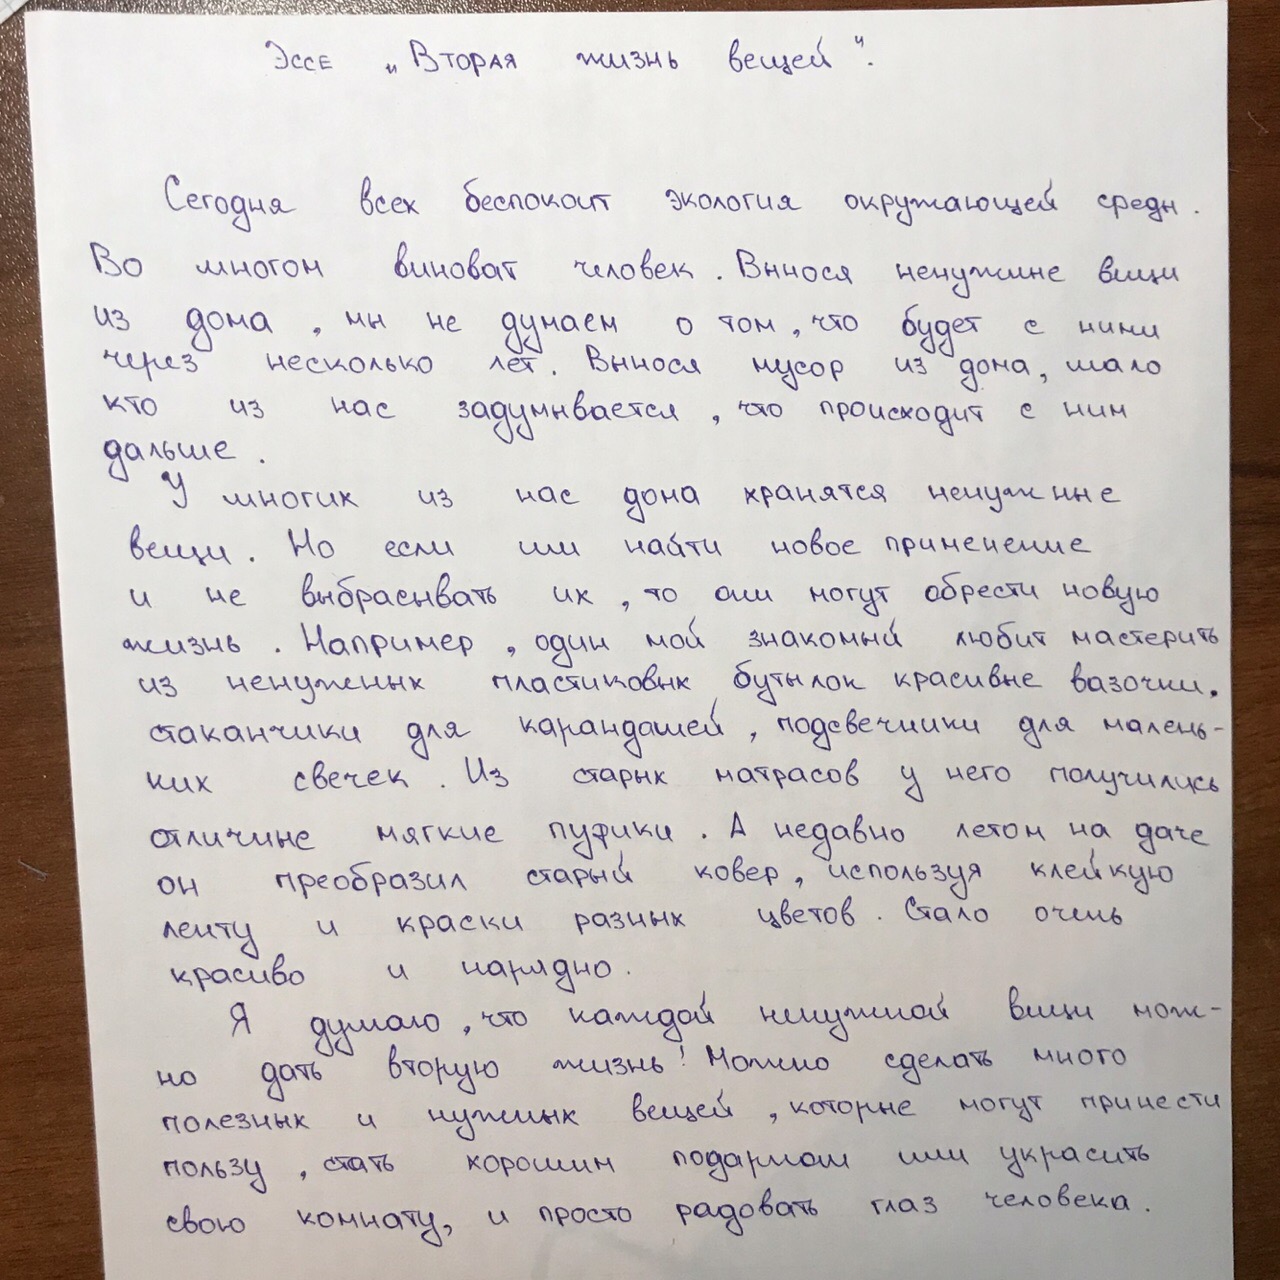 Эссе „Вторая жизнь вещей".
Сегодня всех беспокоит экология окружающей среды.
Во многом виноват человек. Вынося ненужные вещи
из дома, мы не думаем о том, что будет с ними
через несколько лет. Вынося мусор из дома, мало
кто из нас задумывается, что происходит с ним
дальше.
У многих из нас дома хранятся ненужные
вещи. Но если им найти новое применение
и не выбрасывать их, то они могут обрести новую
жизнь. Например, один мой знакомый любит мастерить
из ненужных пластиковых бутылок красивые вазочки,
стаканчики для карандашей, подсвечники для малень-
ких свечек. Из старых матрасов у него получились
отличные мягкие пуфики. А недавно летом на даче
он преобразил старый ковер, используя клейкую
ленту и краски разных цветов. Стало очень
красиво и нарядно.
Я думаю, что каждой ненужной вещи мож-
но дать вторую жизнь! Можно сделать много
полезных и нужных вещей, которые могут принести
пользу, стать хорошим подарком или украсить
свою комнату, и просто радовать глаз человека.